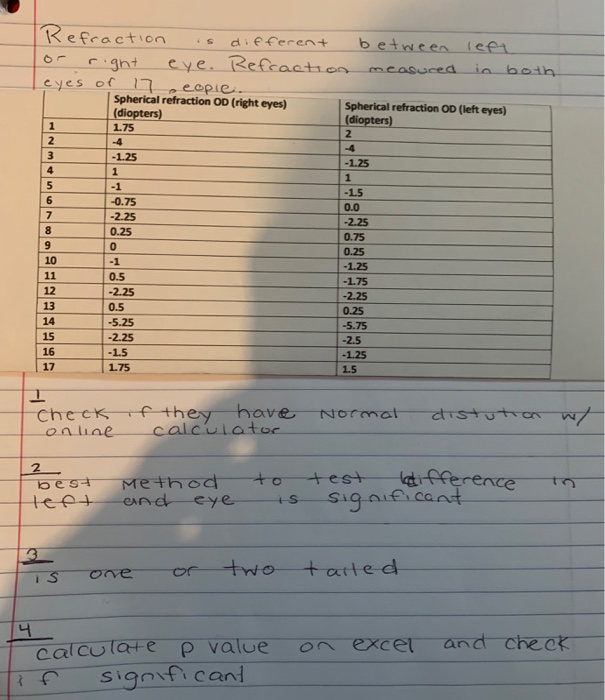 Refraction is different between left
or right eye. Refraction measured in both
eyes of 17 people.
Spherical refraction OD (right eyes) (diopters) Spherical refraction OD (left eyes) (diopters)
1 1.75 2
2 -4 -4
3 -1.25 -1.25
4 1 1
5 -1 -1.5
6 -0.75 0.0
7 -2.25 -2.25
8 0.25 0.75
9 0 0.25
10 -1 -1.25
11 0.5 -1.75
12 -2.25 -2.25
13 0.5 0.25
14 -5.25 -5.75
15 -2.25 -2.5
16 -1.5 -1.25
17 1.75 1.5
1
Check if they have Normal distution w/
online calculator
2
best Method to test difference in
left and eye is significant
3
is one or two tailed
4
calculate p value on excel and check
if significant